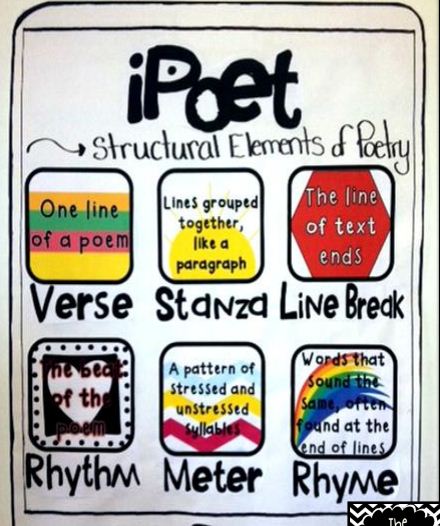 iPoet
Structural Elements of Poetry
One line
of a poem
Lines grouped
together,
like a
paragraph
The line
of text
ends
Verse
Stanza
Line Break
The beat
of the
poem
A pattern of
stressed and
unstressed
syllables
Words that
sound the
same, often
found at the
end of lines
Rhythm
Meter
Rhyme
The